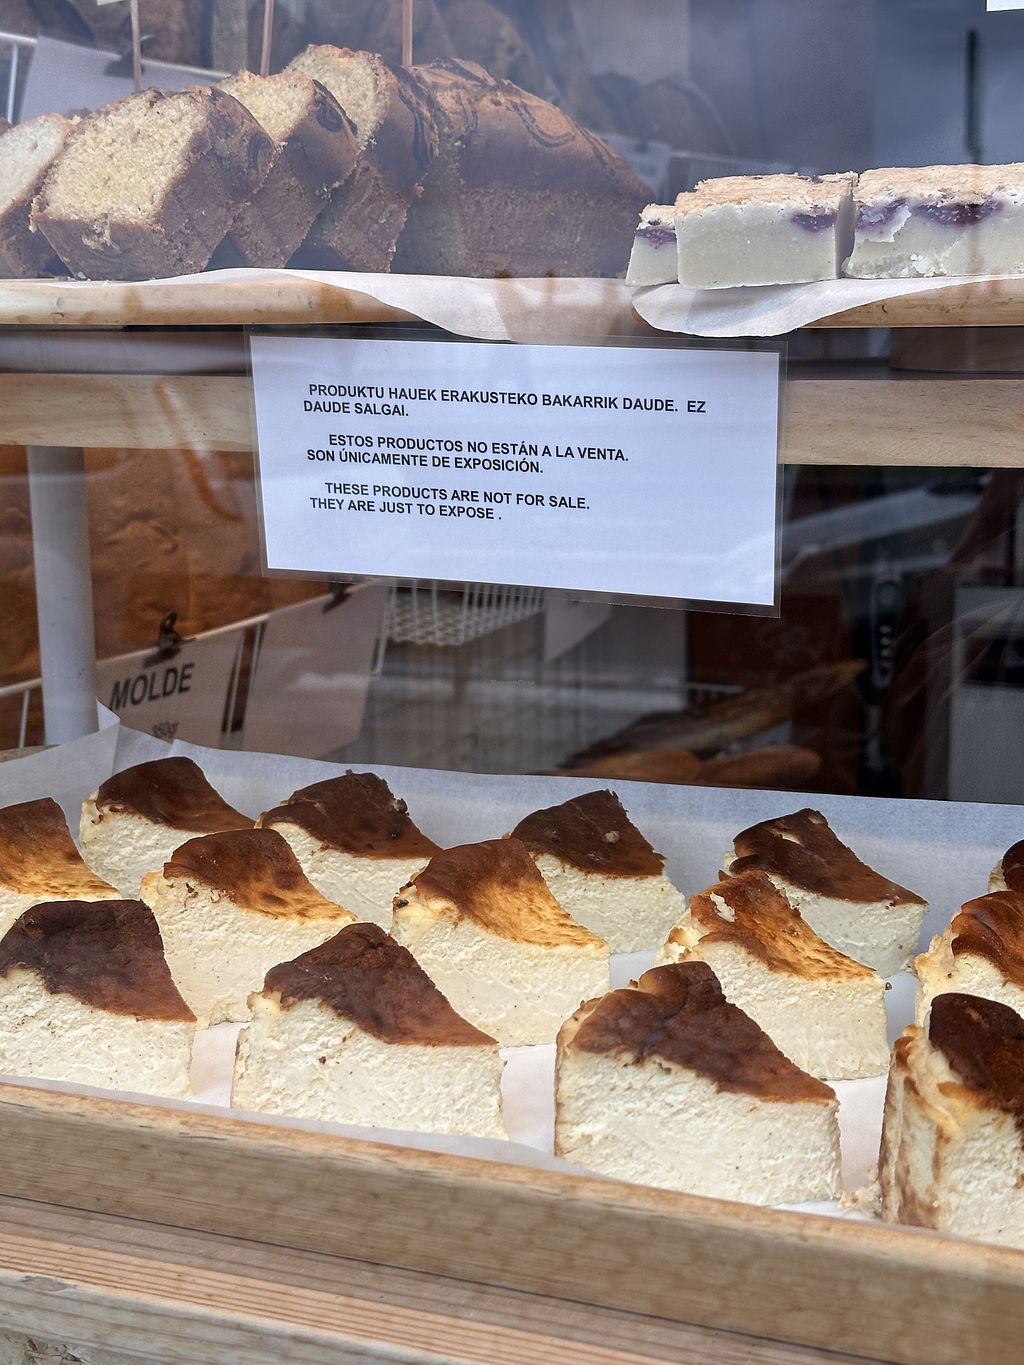 PRODUKTU HAUEK ERAKUSTEKO BAKARRIK DAUDE. EZ
DAUDE SALGAI.
ESTOS PRODUCTOS NO ESTÁN A LA VENTA.
SON ÚNICAMENTE DE EXPOSICIÓN.
THESE PRODUCTS ARE NOT FOR SALE.
THEY ARE JUST TO EXPOSE .
MOLDE
350gr